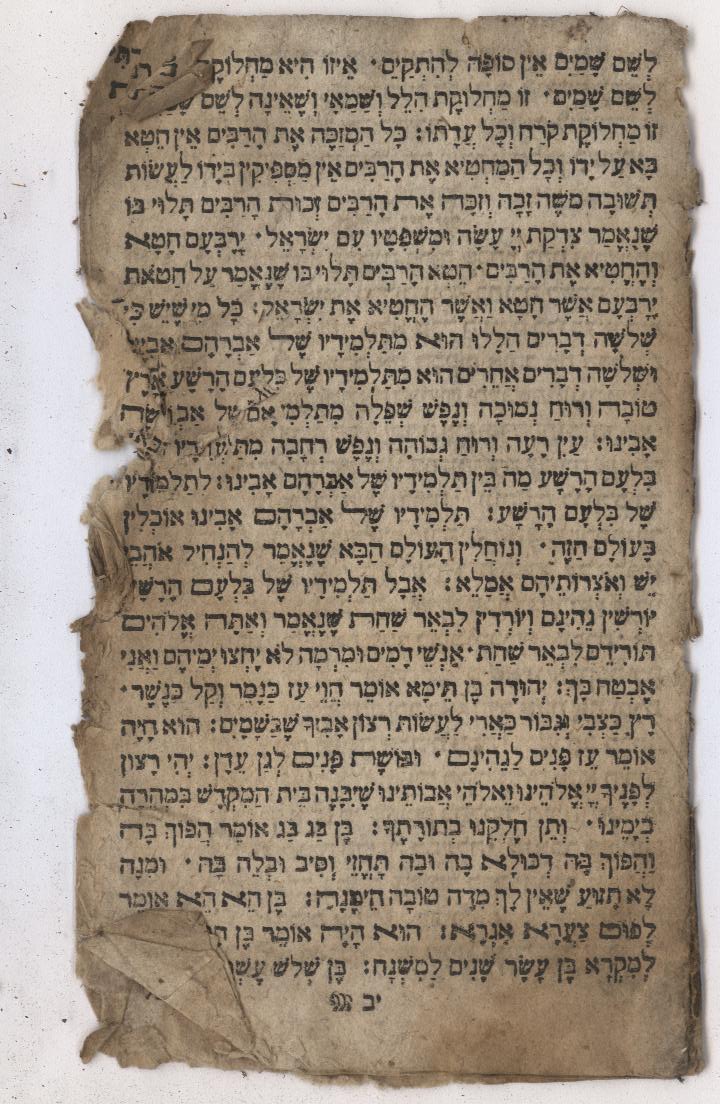 לְשֵׁם שָׁמַיִם אֵין סוֹפָהּ לְהִתְקַיֵּם· אֵיזוֹ הִיא מַחְלוֹקֶת
לְשֵׁם שָׁמַיִם· זוֹ מַחְלוֹקֶת הִלֵּל וְשַׁמַּאי וְשֶׁאֵינָהּ לְשֵׁם
זוֹ מַחְלוֹקֶת קֹרַח וְכָל עֲדָתוֹ: כָּל הַמְזַכֶּה אֶת הָרַבִּים אֵין חֵטְא
בָּא עַל יָדוֹ וְכָל הַמַּחְטִיא אֶת הָרַבִּים אֵין מַסְפִּיקִין בְּיָדוֹ לַעֲשׂוֹת
תְּשׁוּבָה מֹשֶׁה זָכָה וְזִכָּה אֶת הָרַבִּים זְכוּת הָרַבִּים תָּלוּי בּוֹ
שֶׁנֶּאֱמַר צִדְקַת יְיָ עָשָׂה וּמִשְׁפָּטָיו עִם יִשְׂרָאֵל· יָרָבְעָם חָטָא
וְהֶחֱטִיא אֶת הָרַבִּים· חֵטְא הָרַבִּים תָּלוּי בּוֹ שֶׁנֶּאֱמַר עַל חַטֹּאת
יָרָבְעָם אֲשֶׁר חָטָא וַאֲשֶׁר הֶחֱטִיא אֶת יִשְׂרָאֵל: כָּל מִי שֶׁיֵּשׁ
שְׁלֹשָׁה דְבָרִים הַלָּלוּ הוּא מִתַּלְמִידָיו שֶׁל אַבְרָהָם
וּשְׁלֹשָׁה דְבָרִים אֲחֵרִים הוּא מִתַּלְמִידָיו שֶׁל בִּלְעָם הָרָשָׁע
טוֹבָה וְרוּחַ נְמוּכָה וְנֶפֶשׁ שְׁפֵלָה
אָבִינוּ: עַיִן רָעָה וְרוּחַ גְּבוֹהָה וְנֶפֶשׁ רְחָבָה
בִּלְעָם הָרָשָׁע מַה בֵּין תַּלְמִידָיו שֶׁל אַבְרָהָם אָבִינוּ: לְתַלְמִידָיו
שֶׁל בִּלְעָם הָרָשָׁע: תַּלְמִידָיו שֶׁל אַבְרָהָם אָבִינוּ אוֹכְלִין
בָּעוֹלָם הַזֶּה· וְנוֹחֲלִין הָעוֹלָם הַבָּא שֶׁנֶּאֱמַר לְהַנְחִיל אֹהֲבַי
יֵשׁ וְאֹצְרוֹתֵיהֶם אֲמַלֵּא: אֲבָל תַּלְמִידָיו שֶׁל בִּלְעָם הָרָשָׁע
יוֹרְשִׁין גֵּהִינָם וְיוֹרְדִין לִבְאֵר שַׁחַת שֶׁנֶּאֱמַר וְאַתָּה אֱלֹהִים
תּוֹרִידֵם לִבְאֵר שַׁחַת· אַנְשֵׁי דָמִים וּמִרְמָה לֹא יֶחֱצוּ יְמֵיהֶם וַאֲנִי
אֶבְטַח בָּךְ: יְהוּדָה בֶן תֵּימָא אוֹמֵר הֱוֵי עַז כַּנָּמֵר וְקַל כַּנֶּשֶׁר·
רָץ כַּצְּבִי וְגִבּוֹר כָּאֲרִי לַעֲשׂוֹת רְצוֹן אָבִיךָ שֶׁבַּשָּׁמַיִם: הוּא הָיָה
אוֹמֵר עַז פָּנִים לְגֵהִינָם· וּבוֹשֶׁת פָּנִים לְגַן עֵדֶן: יְהִי רָצוֹן
לְפָנֶיךָ יְיָ אֱלֹהֵינוּ וֵאלֹהֵי אֲבוֹתֵינוּ שֶׁיִּבָּנֶה בֵּית הַמִּקְדָּשׁ בִּמְהֵרָה
בְיָמֵינוּ· וְתֵן חֶלְקֵנוּ בְתוֹרָתֶךָ: בֶּן בַּג בַּג אוֹמֵר הֲפוֹךְ בָּהּ
וַהֲפוֹךְ בָּהּ דְּכוּלָּא בָהּ וּבָהּ תֶּחֱזֵי וְסִיב וּבְלֵה בָהּ· וּמִנָּהּ
לָא תָזוּעַ שֶׁאֵין לְךָ מִדָּה טוֹבָה הֵימֶנָּה: בֶּן הֵא הֵא אוֹמֵר
לְפוּם צַעֲרָא אַגְרָא: הוּא הָיָה אוֹמֵר בֶּן
לְמִקְרָא בֶּן עֶשֶׂר שָׁנִים לְמִשְׁנָה: בֶּן שְׁלֹשׁ
יב